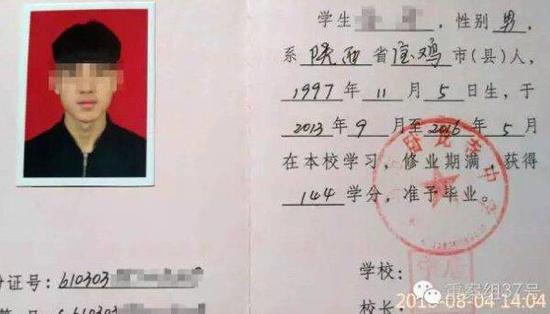 学生 ，性别 男，
系 陕西省宝鸡市（县）人，
1997年11月5日生，于
2013年9月至2016年5月
在本校学习，修业期满，获得
144学分，准予毕业。
份证号：610303
号：
学校：
校长：
重案组37号
08-04 14:04